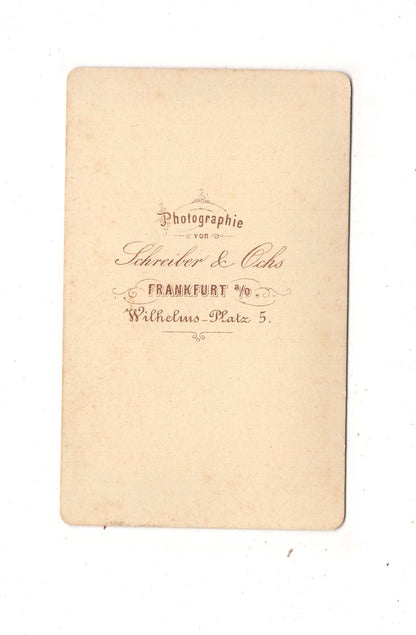 Photographie
von
Schreiber & Ochs
FRANKFURT a/O
Wilhelms-Platz 5.